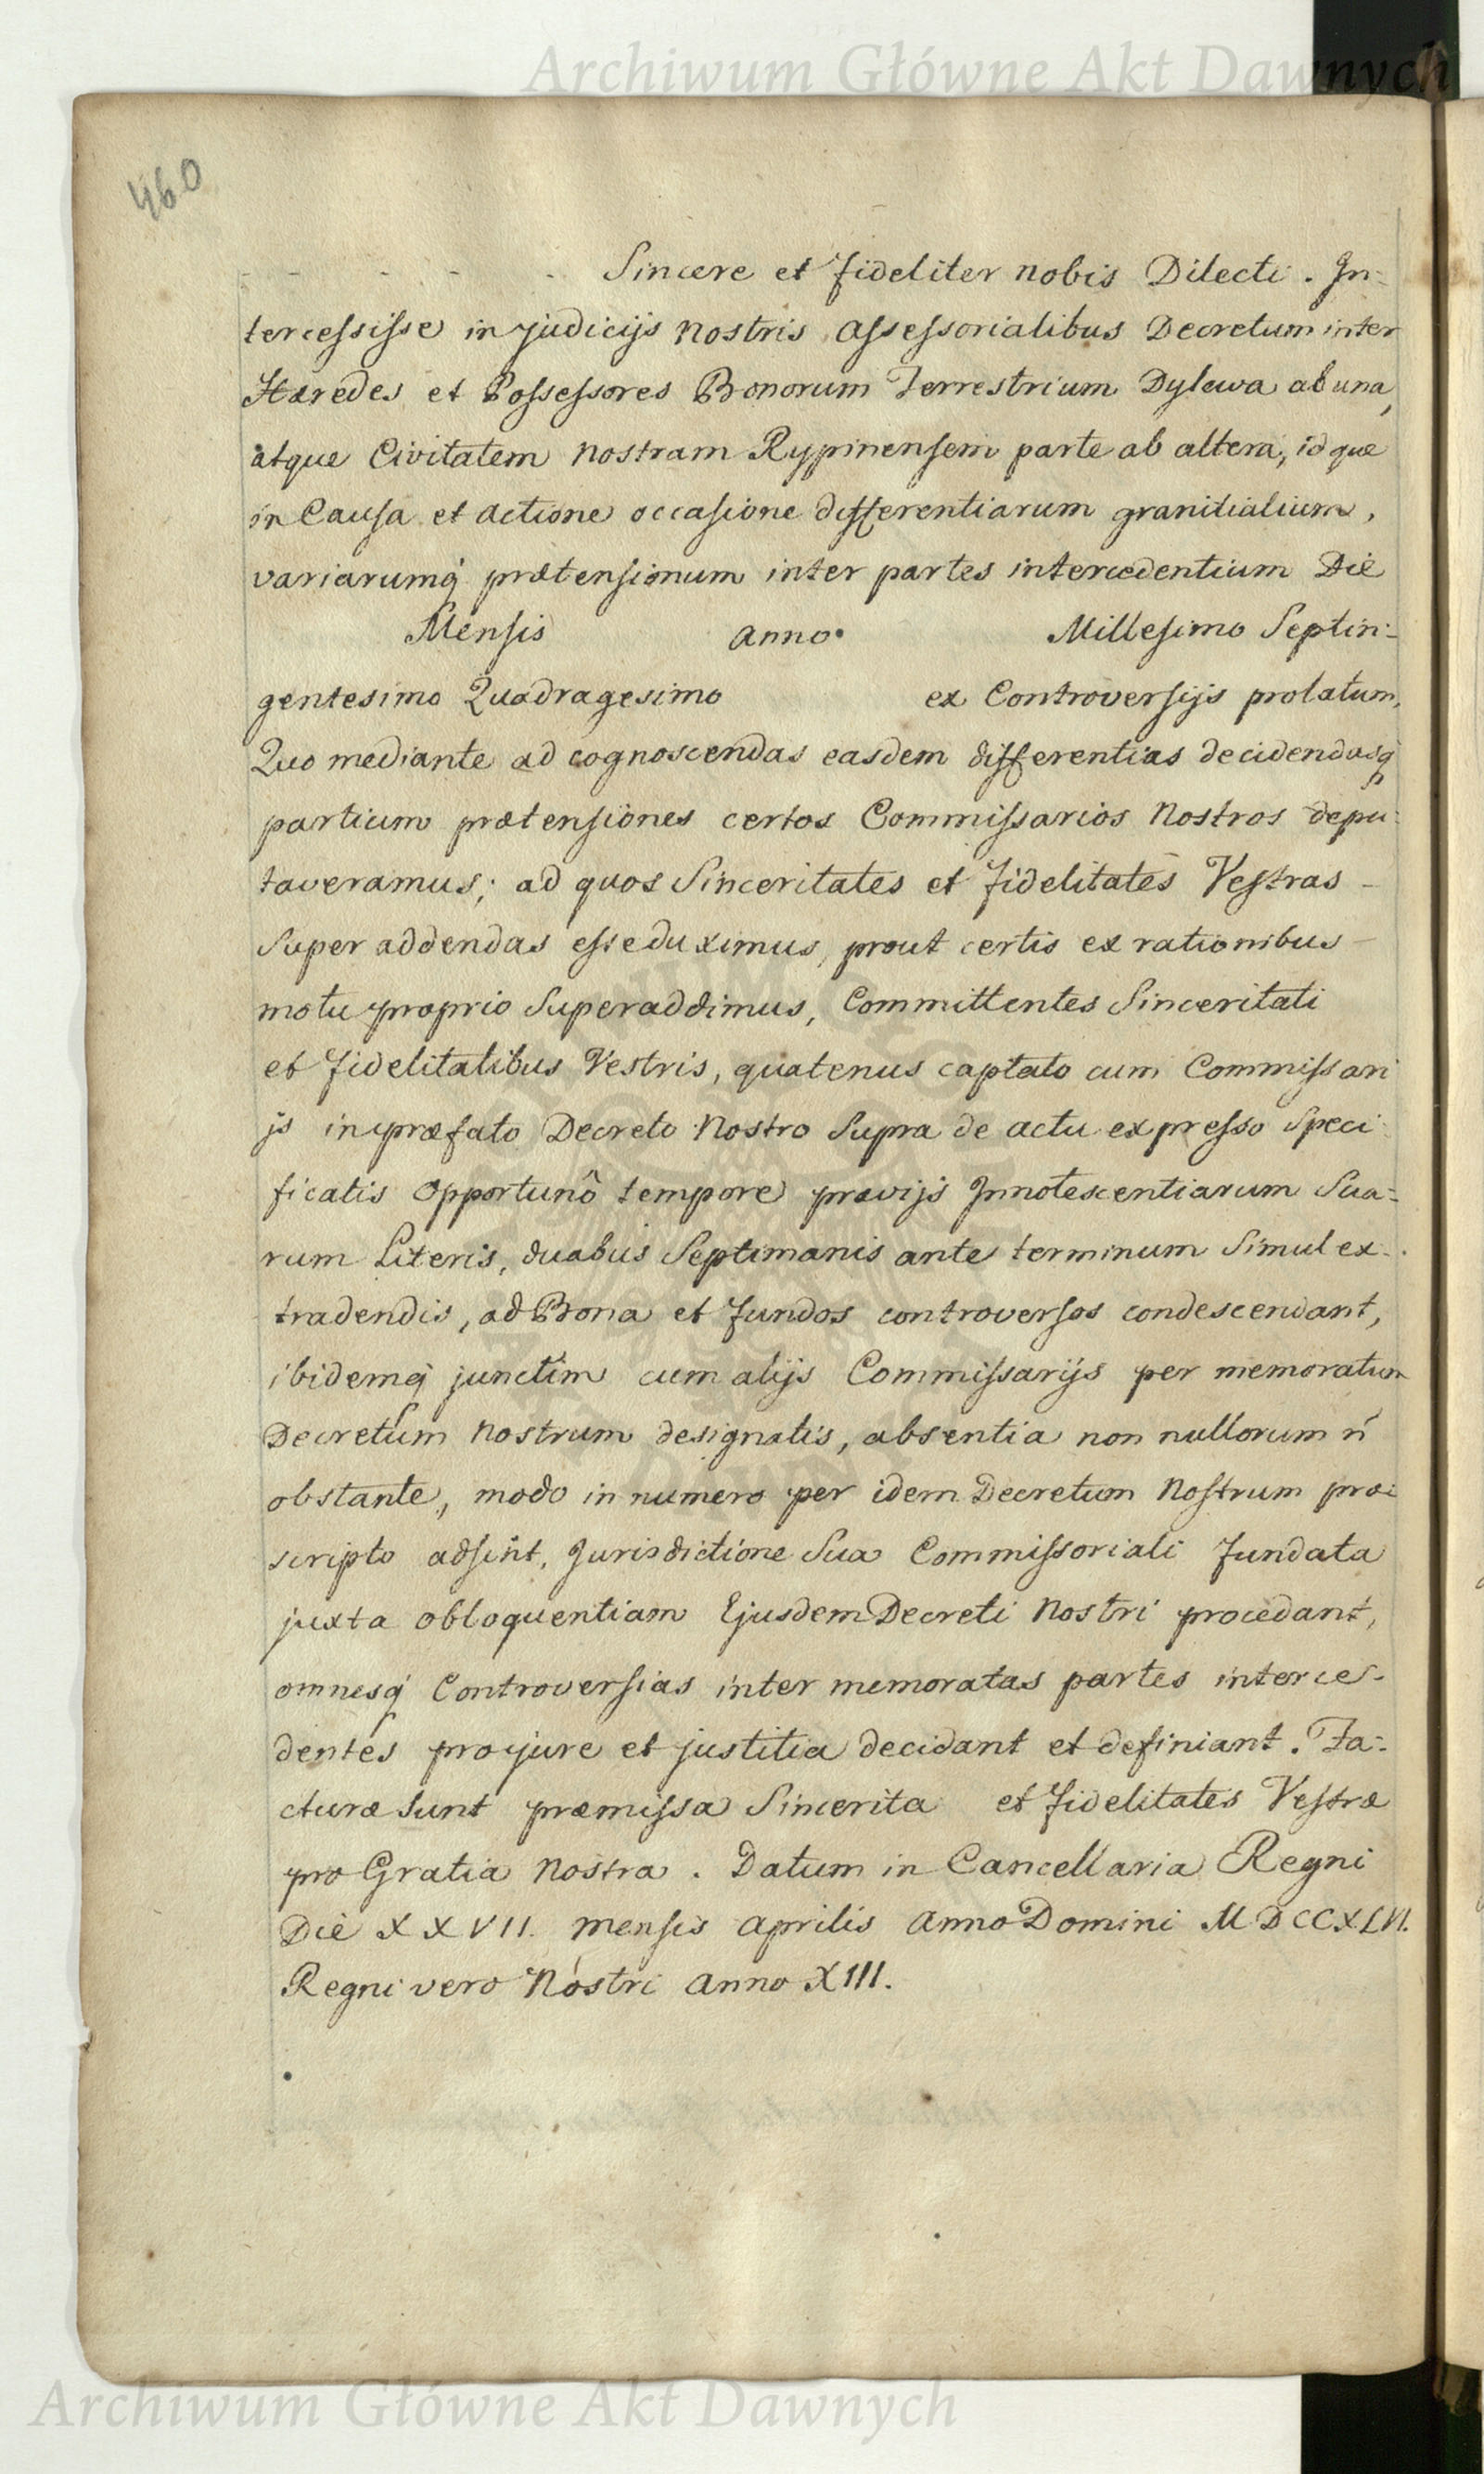 Archiwum Główne Akt Dawnych
460
Sincere et Fideliter nobis Dilecti. In-
tercessisse in Judicijs nostris assessorialibus Decretum inter
Hæredes et Possessores Bonorum Terrestrium Dylewa ab una,
atque Civitatem nostram Rypinensem parte ab altera, id que
in Causa et actione occasione differentiarum granitialium,
variarumq prætensionum inter partes intercedentium Die
Mensis anno Millesimo Septin-
gentesimo Quadragesimo ex Controversijs prolatum,
Quo mediante ad cognoscendas easdem differentias decidendasq
partium prætensiones certos Commissarios Nostros depu-
taveramus; ad quos Sinceritates et Fidelitates Vestras -
Super addendas esse duximus, prout certis ex rationibus -
motu proprio Superaddimus, Committentes Sinceritati
et Fidelitatibus Vestris, quatenus captato cum Commissari
js in præfato Decreto Nostro Supra de actu expresso Speci-
ficatis Opportunô tempore prævijs Innotescentiarum Sua-
rum Literis, duabus Septimanis ante terminum Simul ex-
tradendis, ad Bona et Fundos controversos condescendant,
ibidemq junctim cum alijs Commissarijs per memoratum
Decretum Nostrum designatis, absentia non nullorum ń
obstante, modo in numero per idem Decretum Nostrum præ-
scripto adsint, Jurisdictione Sua Commissoriali Fundata
juxta obloquentiam Ejusdem Decreti Nostri procedant,
omnesq Controversias inter memoratas partes interce-
dentes pro jure et justitia decidant et definiant. Fa-
cturæ sunt præmissa Sincerita et Fidelitates Vestræ
pro Gratia Nostra. Datum in Cancellaria Regni
Die XXVII. mensis aprilis anno Domini MDCCXLVI.
Regni vero Nostri anno XIII.
Archiwum Główne Akt Dawnych